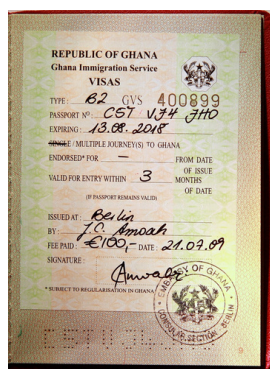 REPUBLIC OF GHANA
Ghana Immigration Service
VISAS
TYPE: B2 GVS 400899
PASSPORT Nº: CST VJ4 JHO
EXPIRING: 13.08.2018
SINGLE / MULTIPLE JOURNEY(S) TO GHANA
ENDORSED* FOR — FROM DATE
OF ISSUE
VALID FOR ENTRY WITHIN 3 MONTHS
OF DATE
(IF PASSPORT REMAINS VALID)
ISSUED AT: Berlin
BY: J.C. Amoah
FEE PAID: €100,- DATE: 21.07.09
SIGNATURE:
* SUBJECT TO REGULARISATION IN GHANA
EMBASSY OF GHANA
CONSULAR SECTION BERLIN
9